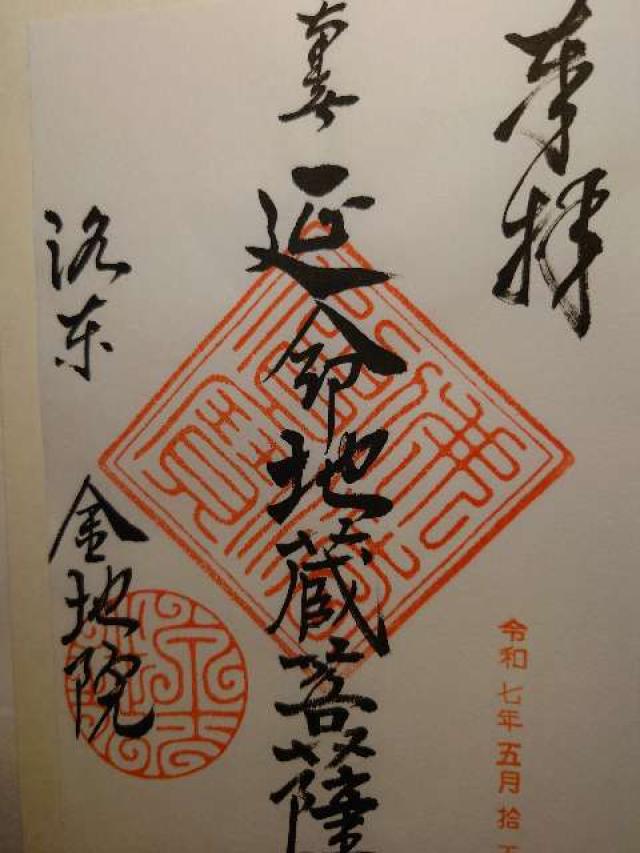 奉拝
延命地蔵菩薩
洛东
金地院
令和七年五月拾